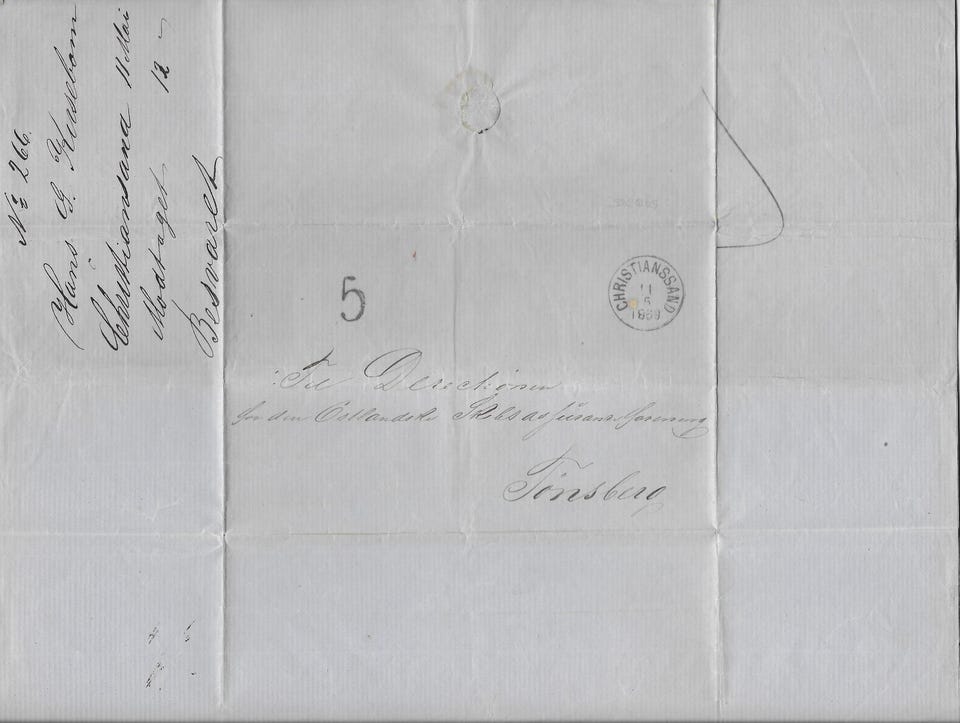 No 266.
Hans G. Kinsebom
Christiansand 11 Mai
Modtaget 12 "
Besvaret
5
CHRISTIANSSAND
11
5
1869
Til Derectiónen
for den Östlandske Skibsassurance forening
Tönsberg